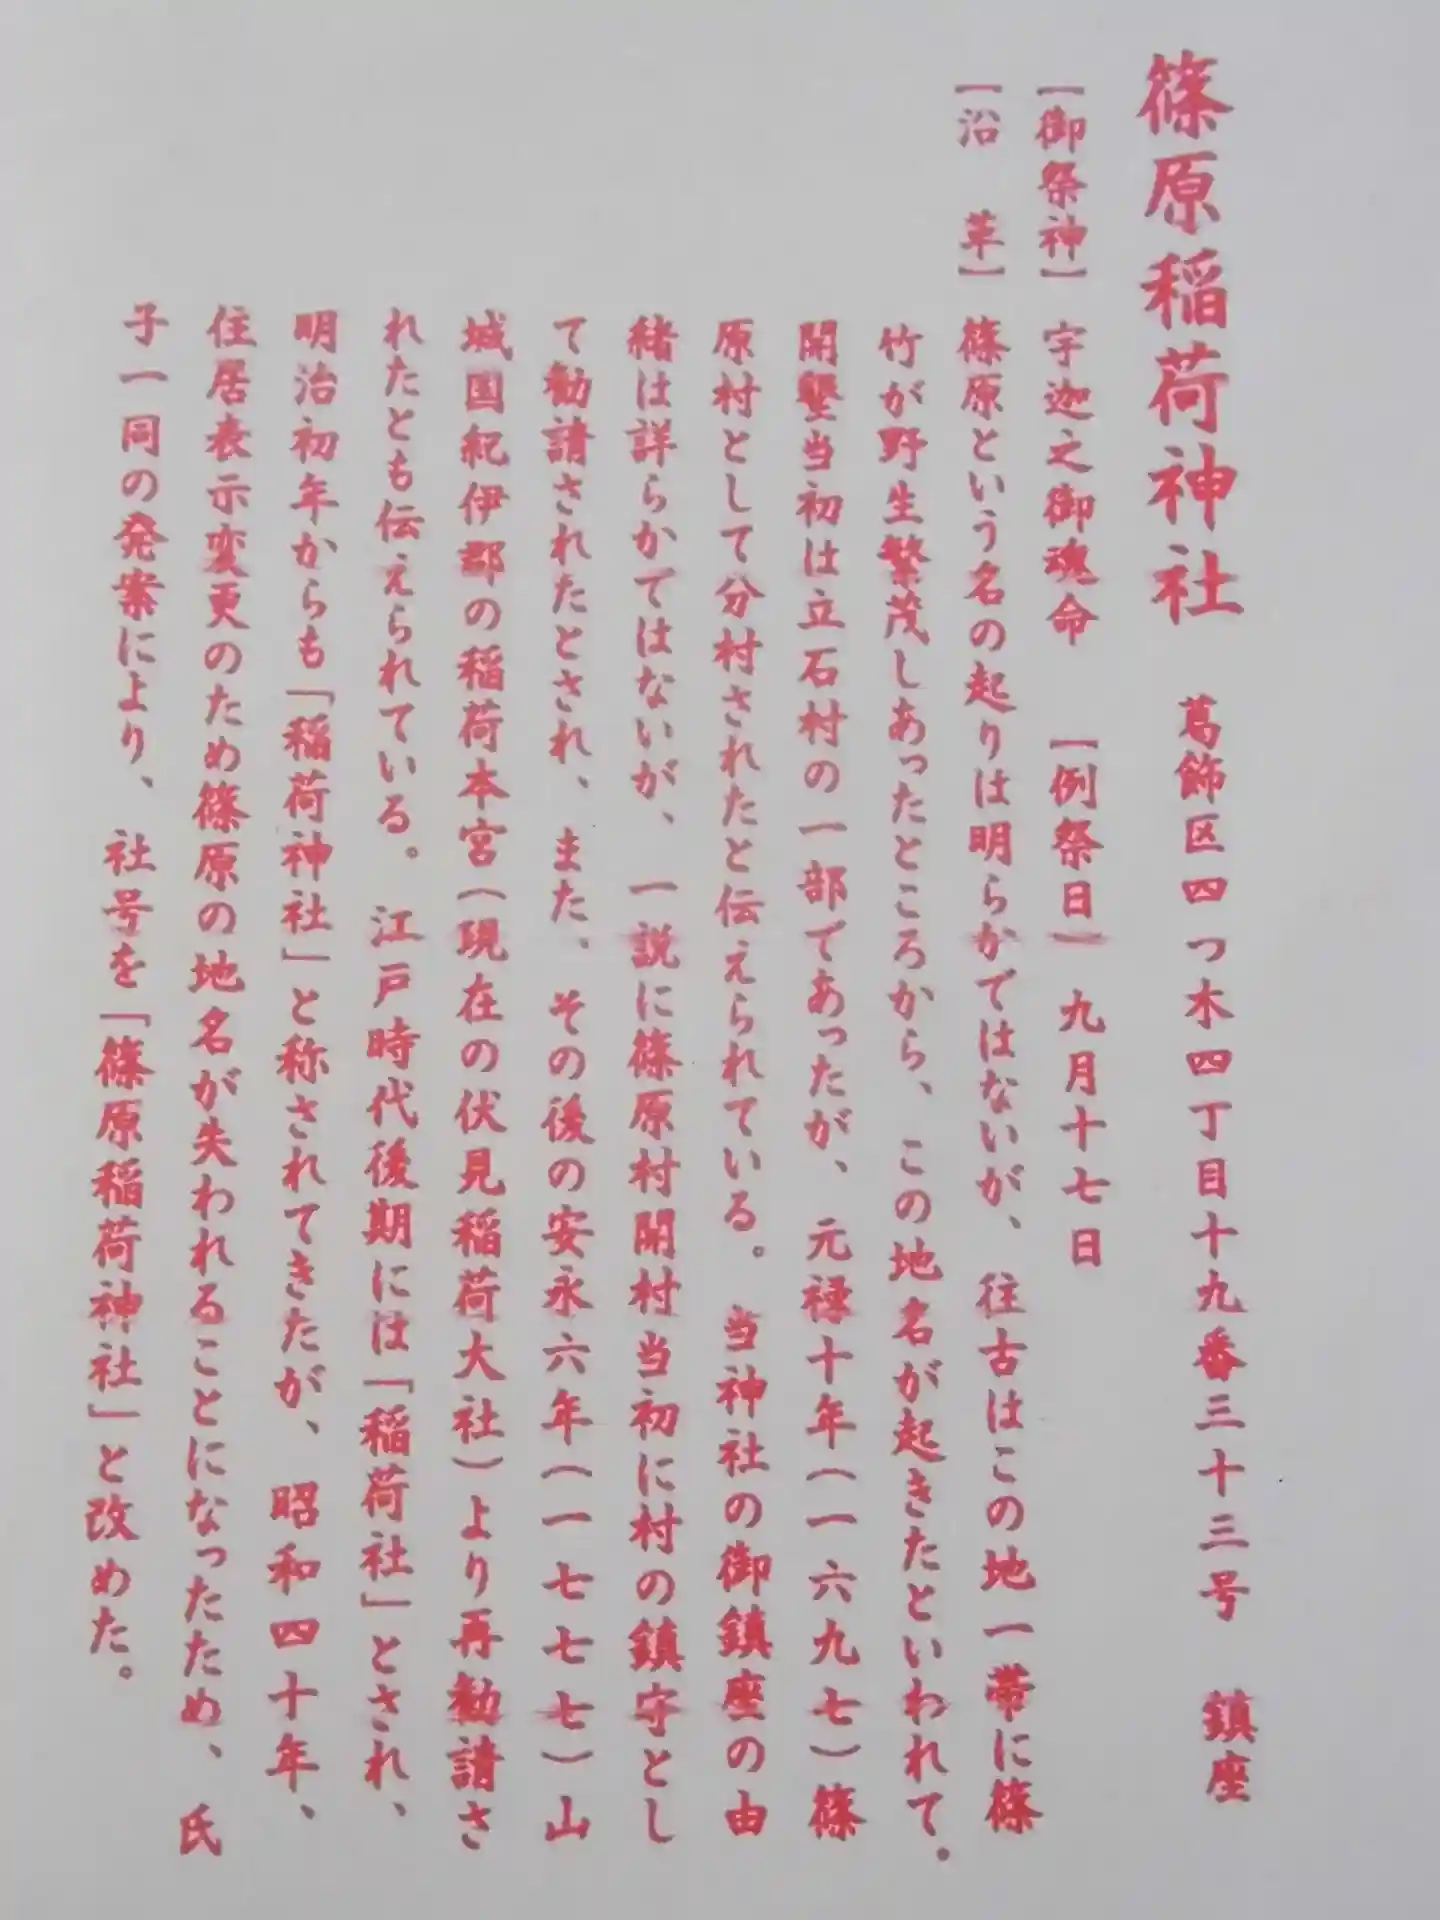 篠原稲荷神社　葛飾区四つ木四丁目十九番三十三号　鎮座
【御祭神】宇迦之御魂命　【例祭日】九月十七日
【沿　革】篠原という名の起りは明らかではないが、往古はこの地一帯に篠
竹が野生繁茂しあったところから、この地名が起きたといわれて.
開墾当初は立石村の一部であったが、元禄十年(一六九七)篠
原村として分村されたと伝えられている。当神社の御鎮座の由
緒は詳らかてはないが、一説に篠原村開村当初に村の鎮守とし
て勧請されたとされ、また、その後の安永六年(一七七七)山
城国紀伊郡の稲荷本宮(現在の伏見稲荷大社)より再勧請さ
れたとも伝えられている。江戸時代後期には「稲荷社」とされ、
明治初年からも「稲荷神社」と称されてきたが、昭和四十年、
住居表示変更のため篠原の地名が失われることになったため、氏
子一同の発案により、社号を「篠原稲荷神社」と改めた。